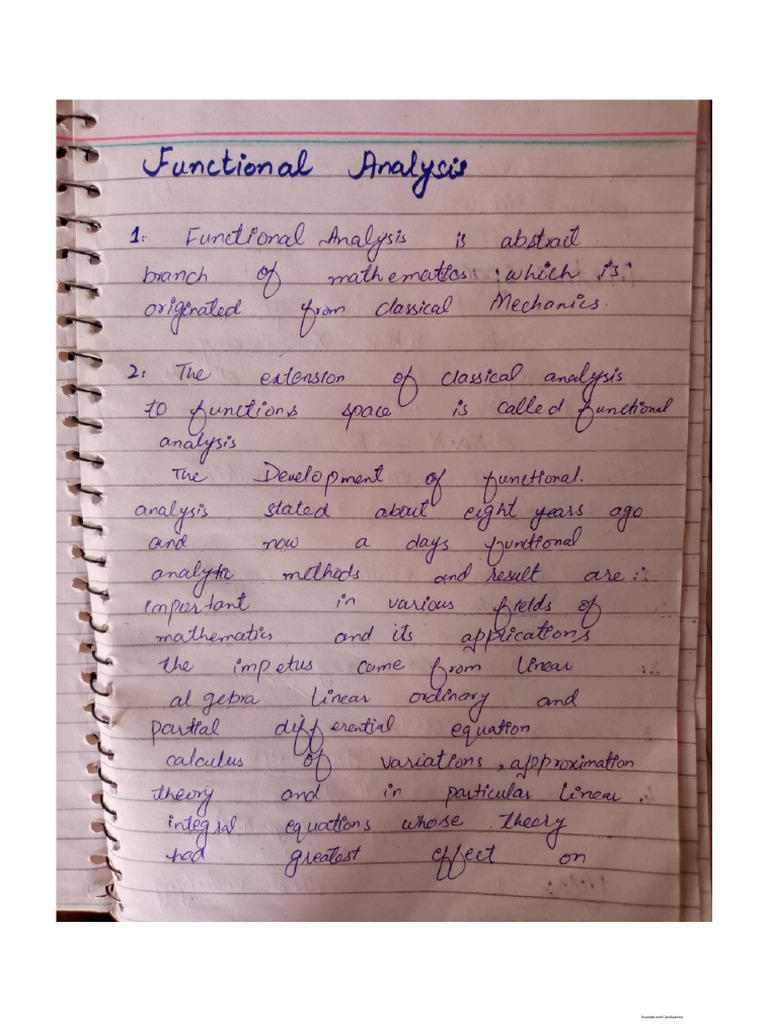 Functional Analysis
1. Functional Analysis is abstract
branch of mathematics which is
originated from classical Mechanics.
2: The extension of classical analysis
to functions space is called functional
analysis
The Development of functional.
analysis stated about eight years ago
and now a days functional
analytic methods and result are
important in various fields of
mathematics and its applications
the impetus came from linear
al gebra linear ordinary and
partial differential equation
calculus of variations, approximation
theory and in particular linear
integral equations whose theory
had greatest effect on
Scanned with CamScanner